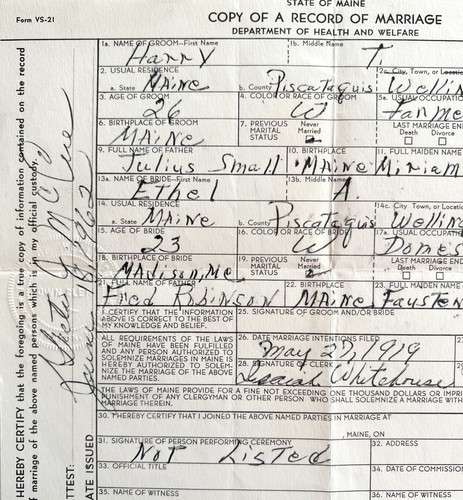 STATE OF MAINE
Form VS-21
COPY OF A RECORD OF MARRIAGE
DEPARTMENT OF HEALTH AND WELFARE
1a. NAME OF GROOM—First Name
1b. Middle Name
Harry T.
2. USUAL RESIDENCE
2c. City, Town, or Locat
a. State MAINE b. County Piscataquis Wellin
3. AGE OF GROOM
4. COLOR OR RACE OF GROOM
5a. USUAL OCCUPATI
26 W Farme
6. BIRTHPLACE OF GROOM
7. PREVIOUS MARITAL STATUS
Never Married
LAST MARRIAGE END
Death Divorce
MAINE
9. FULL NAME OF FATHER
10. BIRTHPLACE
11. FULL MAIDEN NAME
Julius Small MAINE Miriam
13a. NAME OF BRIDE—First Name
13b. Middle Name
Ethel A.
14. USUAL RESIDENCE
14c. City, Town, or Locatio
a. State MAINE b. County Piscataquis Welling
15. AGE OF BRIDE
16. COLOR OR RACE OF BRIDE
17a. USUAL OCCUPATI
23 W Domes
18. BIRTHPLACE OF BRIDE
19. PREVIOUS MARITAL STATUS
Never Married
LAST MARRIAGE END
Death Divorce
MAdison, Me
21. FULL NAME OF FATHER
22. BIRTHPLACE
23. FULL MAIDEN NAME
Fred Robinson MAINE Fausten
I CERTIFY THAT THE INFORMATION
ABOVE IS CORRECT TO THE BEST OF
MY KNOWLEDGE AND BELIEF.
25. SIGNATURE OF GROOM AND/OR BRIDE
ALL REQUIREMENTS OF THE LAWS
OF MAINE HAVE BEEN FULFILLED
AND ANY PERSON AUTHORIZED TO
SOLEMNIZE MARRIAGES IN MAINE IS
HEREBY AUTHORIZED TO SOLEM-
NIZE THE MARRIAGE OF THE ABOVE
NAMED PARTIES.
26. DATE MARRIAGE INTENTIONS FILED
May 21, 1919
28. SIGNATURE OF CLERK
Isaiah Whitehouse
THE LAWS OF MAINE PROVIDE FOR A FINE NOT EXCEEDING ONE THOUSAND DOLLARS OR IMPRI
PUNISHMENT OF ANY CLERGYMAN OR OTHER PERSON WHO SHALL SOLEMNIZE A MARRIAGE WITH
MARRIAGE THEREIN.
30. I HEREBY CERTIFY THAT I JOINED THE ABOVE NAMED PARTIES IN MARRIAGE AT
, MAINE, ON
31. SIGNATURE OF PERSON PERFORMING CEREMONY
32. ADDRESS
Not Listed
33. OFFICIAL TITLE
34. DATE OF COMMISSION
35. NAME OF WITNESS
36. NAME OF WITNESS
HEREBY CERTIFY that the foregoing is a true copy of information contained on the record
f marriage of the above named persons which is in my official custody.
ATTEST:
DATE ISSUED